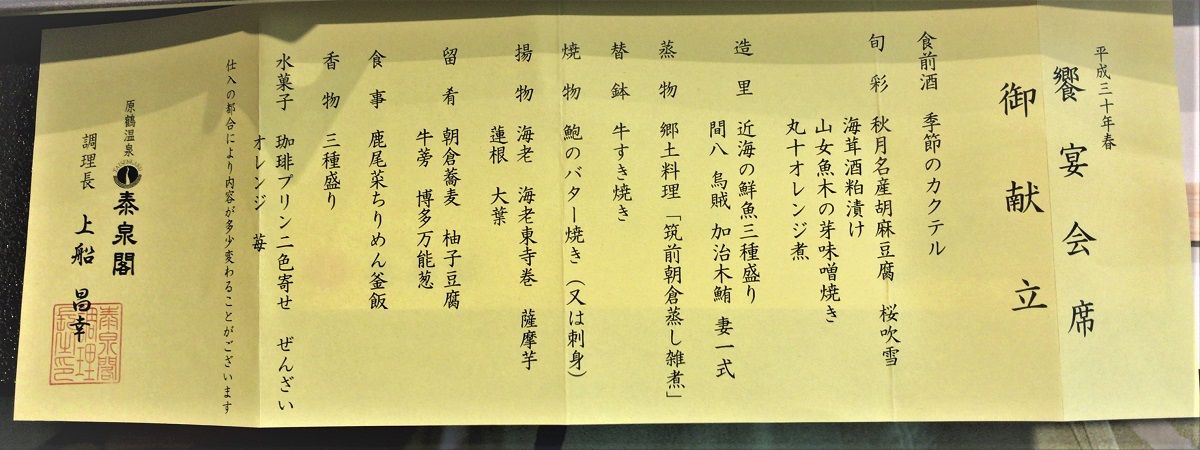 平成三十年春
饗宴会席
御献立
食前酒 季節のカクテル
旬彩 秋月名産胡麻豆腐 桜吹雪
海茸酒粕漬け
山女魚木の芽味噌焼き
丸十オレンジ煮
造里 近海の鮮魚三種盛り
間八 烏賊 加治木鮪 妻一式
蒸物 郷土料理「筑前朝倉蒸し雑煮」
替鉢 牛すき焼き
焼物 鮑のバター焼き(又は刺身)
揚物 海老 海老東寺巻 薩摩芋
蓮根 大葉
留肴 朝倉蕎麦 柚子豆腐
牛蒡 博多万能葱
食事 鹿尾菜ちりめん釜飯
香物 三種盛り
水菓子 珈琲プリン二色寄せ ぜんざい
オレンジ 苺
仕入の都合により内容が多少変わることがございます
原鶴温泉 泰泉閣
調理長 上船 昌幸
泰泉閣
調理
長之印